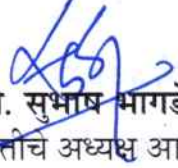 . सुभाष भागडे
तीचे अध्यक्ष आ